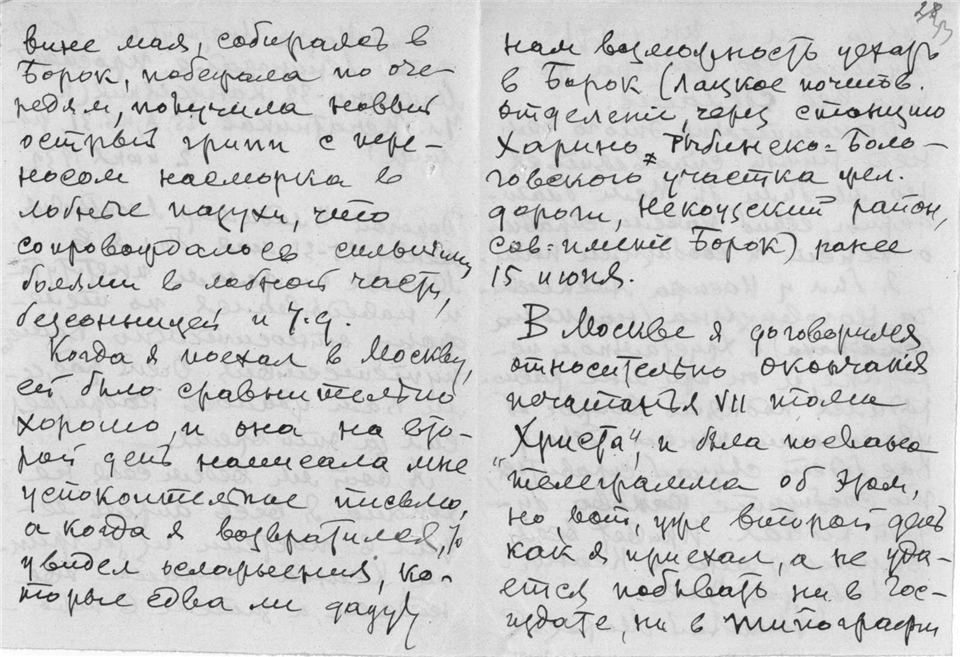 вине мая, собираясь в
Борок, побегала по оче-
редям, получила новый
острый грипп с пере-
носом насморка в
лобные пазухи, что
сопровождалось сильными
болями в лобной части,
безсонницей и т.д.
Когда я поехал в Москву,
ей было сравнительно
хорошо, и она на вто-
рой день написала мне
успокоительное письмо,
а когда я возвратился, то
увидел осложнения, ко-
торые едва ли дадут
28
нам возможность уехать
в Борок (Лацкое почтов.
отделение, через станцию
Харино, Рыбинско-Боло-
говского участка жел.
дороги, Некоузский район,
сов-имение Борок) ранее
15 июня.
В Москве я договорился
относительно окончания
печатанья VII тома
"Христа", и была послана
телеграмма об этом,
но вот, уже второй день
как я приехал, а не уда-
ется побывать ни в Гос-
издате, ни в типографии